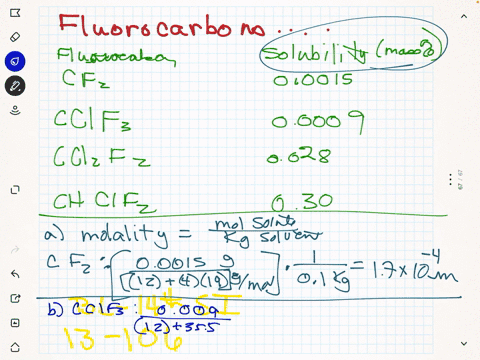 Fluorocarbons ....
Fluorocarbon Solubility (mass%)
CF2 0.0015
CClF3 0.0009
CCl2F2 0.028
CHClF2 0.30
a) molality = mol solute / Kg solvent
CF2: [0.0015 g / [(12)+(4)(19)] g/mol] · 1 / 0.1 Kg = 1.7 x 10^-4 m
b) CClF3: 0.009
(12)+35.5
13-106